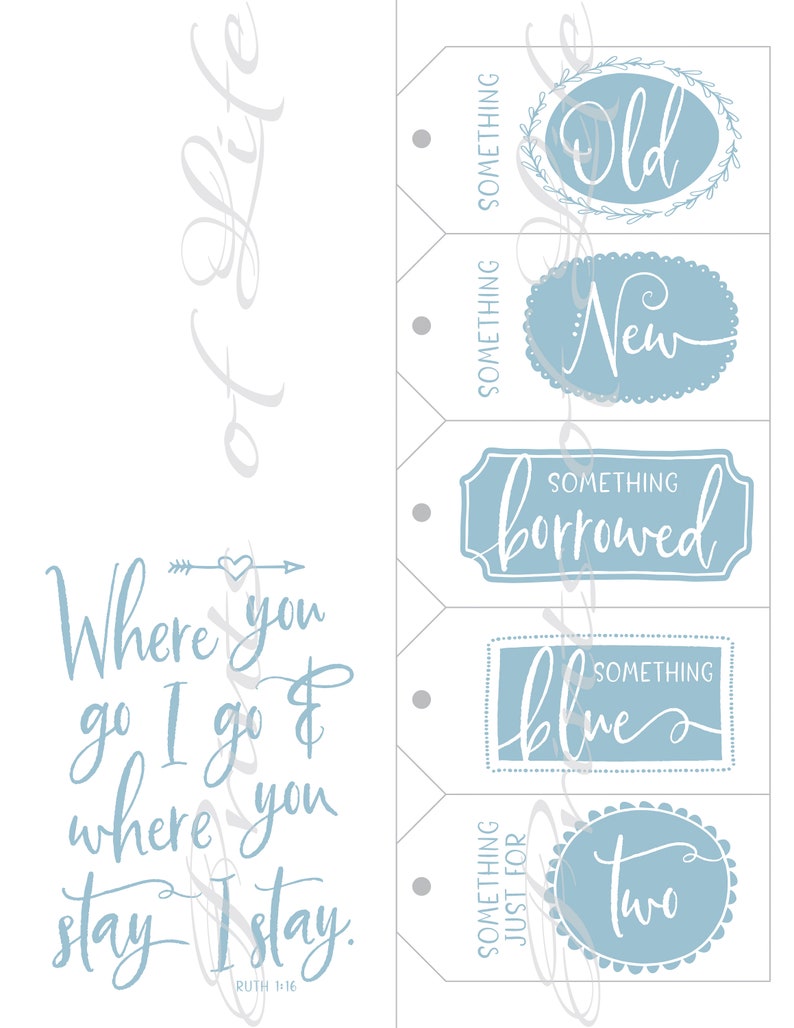 Where you
go I go &
where you
stay I stay.
RUTH 1:16
SOMETHING
Old
SOMETHING
New
SOMETHING
borrowed
SOMETHING
blue
SOMETHING
JUST FOR
two
of Life
of Life